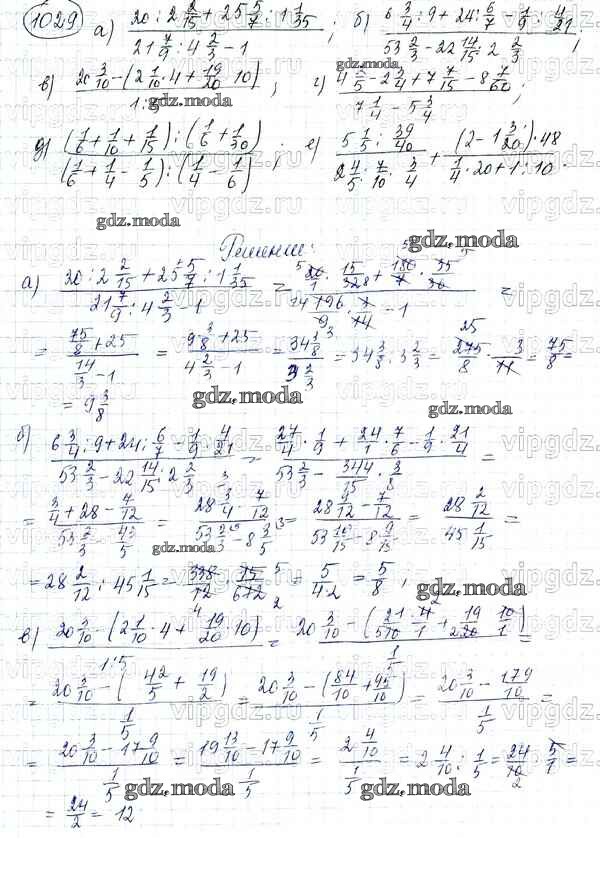 1029 а) (20 : 2 2/15 + 25 5/7 : 1 1/35) / (21 7/9 : 4 2/3 − 1) ; б) (6 3/4 : 9 + 24 : 6/7 − 1/9 : 4/21) / (53 2/3 − 22 14/15 : 2 2/3) ;
в) (20 3/10 − (2 1/10 · 4 + 19/20 · 10)) / (1 : 5) ; г) (4 4/5 − 2 3/4 + 7 7/15 − 8 7/60) / (7 1/4 − 5 3/4) ;
д) ((1/6 + 1/10 + 1/15) : (1/6 + 1/30)) / ((1/6 + 1/4 − 1/5) : (1/4 − 1/6)) ; е) (5 1/5 : 39/40) / (2 4/5 · 7/10 · 3/4) + ((2 − 1 3/20) · 48) / (1/4 · 20 + 1 : 10) .
gdz.moda
Решение:
а) (20 : 2 2/15 + 25 5/7 : 1 1/35) / (21 7/9 : 4 2/3 − 1) = (20/1 · 15/32 + 180/7 · 35/36) / (196/9 · 3/14 − 1) =
= (75/8 + 25) / (14/3 − 1) = (9 3/8 + 25) / (4 2/3 − 1) = (34 3/8) / (3 2/3) = 34 3/8 : 3 2/3 = 275/8 · 3/11 = 75/8 =
= 9 3/8
б) (6 3/4 : 9 + 24 : 6/7 − 1/9 : 4/21) / (53 2/3 − 22 14/15 : 2 2/3) = (27/4 · 1/9 + 24/1 · 7/6 − 1/9 · 21/4) / (53 2/3 − 344/15 · 3/8) =
= (3/4 + 28 − 7/12) / (53 2/3 − 43/5) = (28 3/4 − 7/12) / (53 2/3 − 8 3/5) = (28 9/12 − 7/12) / (53 10/15 − 8 9/15) = (28 2/12) / (45 1/15) =
= 28 2/12 : 45 1/15 = 338/12 · 15/676 = 5/(4·2) = 5/8 ;
в) (20 3/10 − (2 1/10 · 4 + 19/20 · 10)) / (1 : 5) = (20 3/10 − (21/10 · 4/1 + 19/20 · 10/1)) / (1/5) =
= (20 3/10 − (42/5 + 19/2)) / (1/5) = (20 3/10 − (84/10 + 95/10)) / (1/5) = (20 3/10 − 179/10) / (1/5) =
= (20 3/10 − 17 9/10) / (1/5) = (19 13/10 − 17 9/10) / (1/5) = (2 4/10) / (1/5) = 2 4/10 : 1/5 = 24/10 · 5/1 =
= 24/2 = 12
gdz.moda
vipgdz.ru